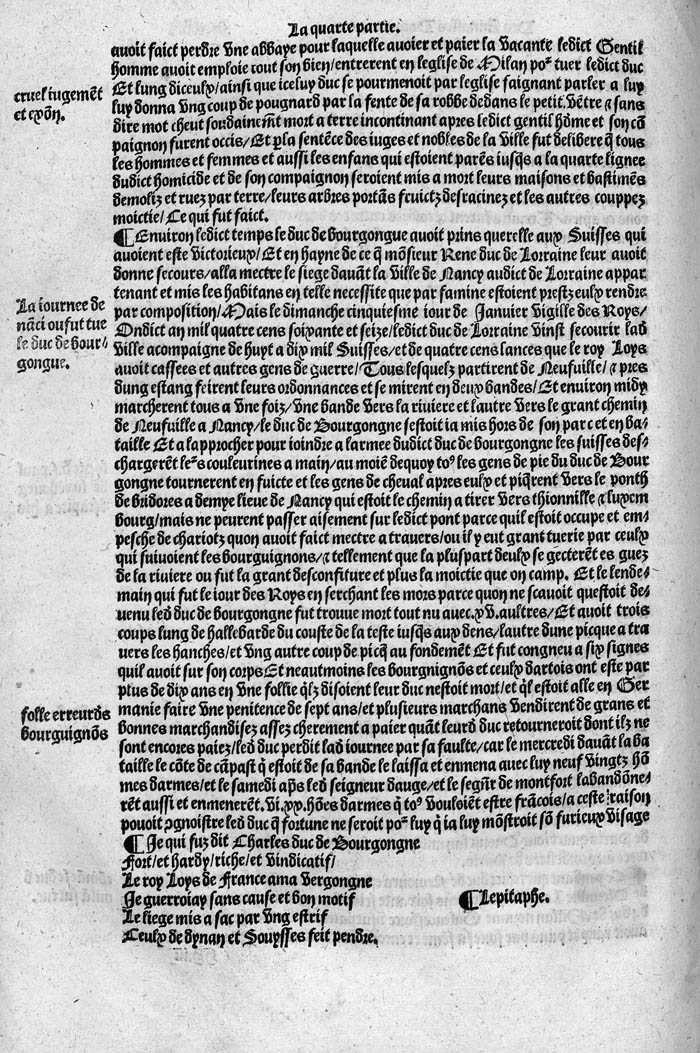 La quarte partie.
avoit faict perdre vne abbaye pour laquelle avoier et paier la vacante ledict Gentil
homme avoit emploie tout son bien/entrerent en leglise de Milan poꝰ tuer ledict duc
Et lung diceulx/ainsi que iceluy duc se pourmenoit par leglise faignant parler a luy
cruel iugemẽt
et exõn.
luy donna vng coup de pougnard par la fente de sa robbe dedans le petit vẽtre ⁊ sans
dire mot cheut soudainemẽt mort a terre incontinant apres ledict gentil hõme et son cõ
paignon furent occis/Et ꝑ la sentẽce des iuges et nobles de la ville fut delibere q̃ tous
les hommes et femmes et aussi les enfans qui estoient parẽs iusq̃s a la quarte lignee
dudict homicide et de son compaignon seroient mis a mort leurs maisons et bastimẽs
demoliz et ruez par terre/leurs arbres portãs fruictz desracinez et les autres couppez
moictie/Ce qui fut faict.
¶Environ ledict temps le duc de bourgongue avoit prins querelle aux Suisses qui
avoient este victorieux/Et en hayne de ce q̃ mõsieur Rene duc de Lorraine leur avoit
donne secours/alla mectre le siege davãt la ville de Nancy audict de Lorraine appar
tenant et mis les habitans en telle necessite que par famine estoient prestz eulx rendre
La iournee de
nãci ou fut tue
le duc de bour⸗
gongue.
par composition/Mais le dimanche cinquiesme iour de Janvier vigille des Roys/
Ondict an mil quatre cens soixante et seize/ledict duc de Lorraine vinst secourir lad
ville acompaigne de huyt a dix mil Suisses/et de quatre cens lances que le roy Loys
avoit cassees et autres gens de guerre/Tous lesquelz partirent de Neufuille/⁊ pres
dung estang feirent leurs ordonnances et se mirent en deux bandes/Et environ midy
marcherent tous a vne foiz/vne bande vers la riviere et lautre vers le grant chemin
de Neufuille a Nancy/le duc de Bourgongne sestoit ia mis hors de son parc et en ba⸗
taille Et a lapprocher pour ioindre a larmee dudict duc de bourgongne les suisses des⸗
chargerẽt leꝰs couleurines a main/au moiẽ dequoy toꝰ les gens de pie du duc de Bour
gongne tournerent en fuicte et les gens de cheual apres eulx et piq̃rent vers le ponth
de bridores a demye lieue de Nancy qui estoit le chemin a tirer vers thionnille ⁊ luxem
bourg/mais ne peurent passer aisement sur ledict pont parce quil estoit occupe et em⸗
pesche de chariotz quon avoit faict mectre a travers/ou il y eut grant tuerie par ceulx
qui suivoient les bourguignons/⁊ tellement que la pluspart deulx se gecterẽt es guez
de la riviere ou fut la grant desconfiture et plus la moictie que on camp. Et le lende⸗
main qui fut le iour des Roys en serchant les mors parce quon ne scauoit questoit de⸗
venu led duc de bourgongne fut trouue mort tout nu avec.xv.aultres/Et avoit trois
coups lung de hallebarde du couste de la teste iusq̃s aux dens/lautre dune picque a tra
vers les hanches/et vng autre coup de picq̃ au fondemẽt Et fut congneu a six signes
quil avoit sur son corps Et neautmoins les bourgnignõs et ceulx dartois ont este par
plus de dix ans en vne follie q̃lz disoient leur duc nestoit mort/et q̃l estoit alle en Ger
folle erreur ds
bourguignõs
manie faire vne penitence de sept ans/et plusieurs marchans vendirent de grans et
bonnes marchandisez assez cherement a paier quãt leurd duc retourneroit dont ilz ne
sont encores paiez/led duc perdit lad iournee par sa faulte/car le mercredi davãt la ba
taille le cõte de cãpast q̃ estoit de sa bande le laissa et enmena avec luy neuf vingtz hõ
mes darmes/et le samedi ap̃s led seigneur dauge/et le segñr de montfort labandõne⸗
rẽt aussi et enmenerẽt.vi.xx.hões darmes q̃ toꝰ vouloiẽt estre frãcois/a ceste raison
pouoit ꝯgnoistre led duc q̃ fortune ne seroit poꝰ luy q̃ ia luy mõstroit sõ furieux visage
¶Je qui fuz dit Charles duc de Bourgongne
Fort/et hardy/riche/et vindicatif/
Le roy Loys de France ama vergongne
Je guerroiay sans cause et bon motif
¶Lepitaphe.
Le liege mis a sac par vng estrif
Ceulx de dynan et Souysses feit pendre.